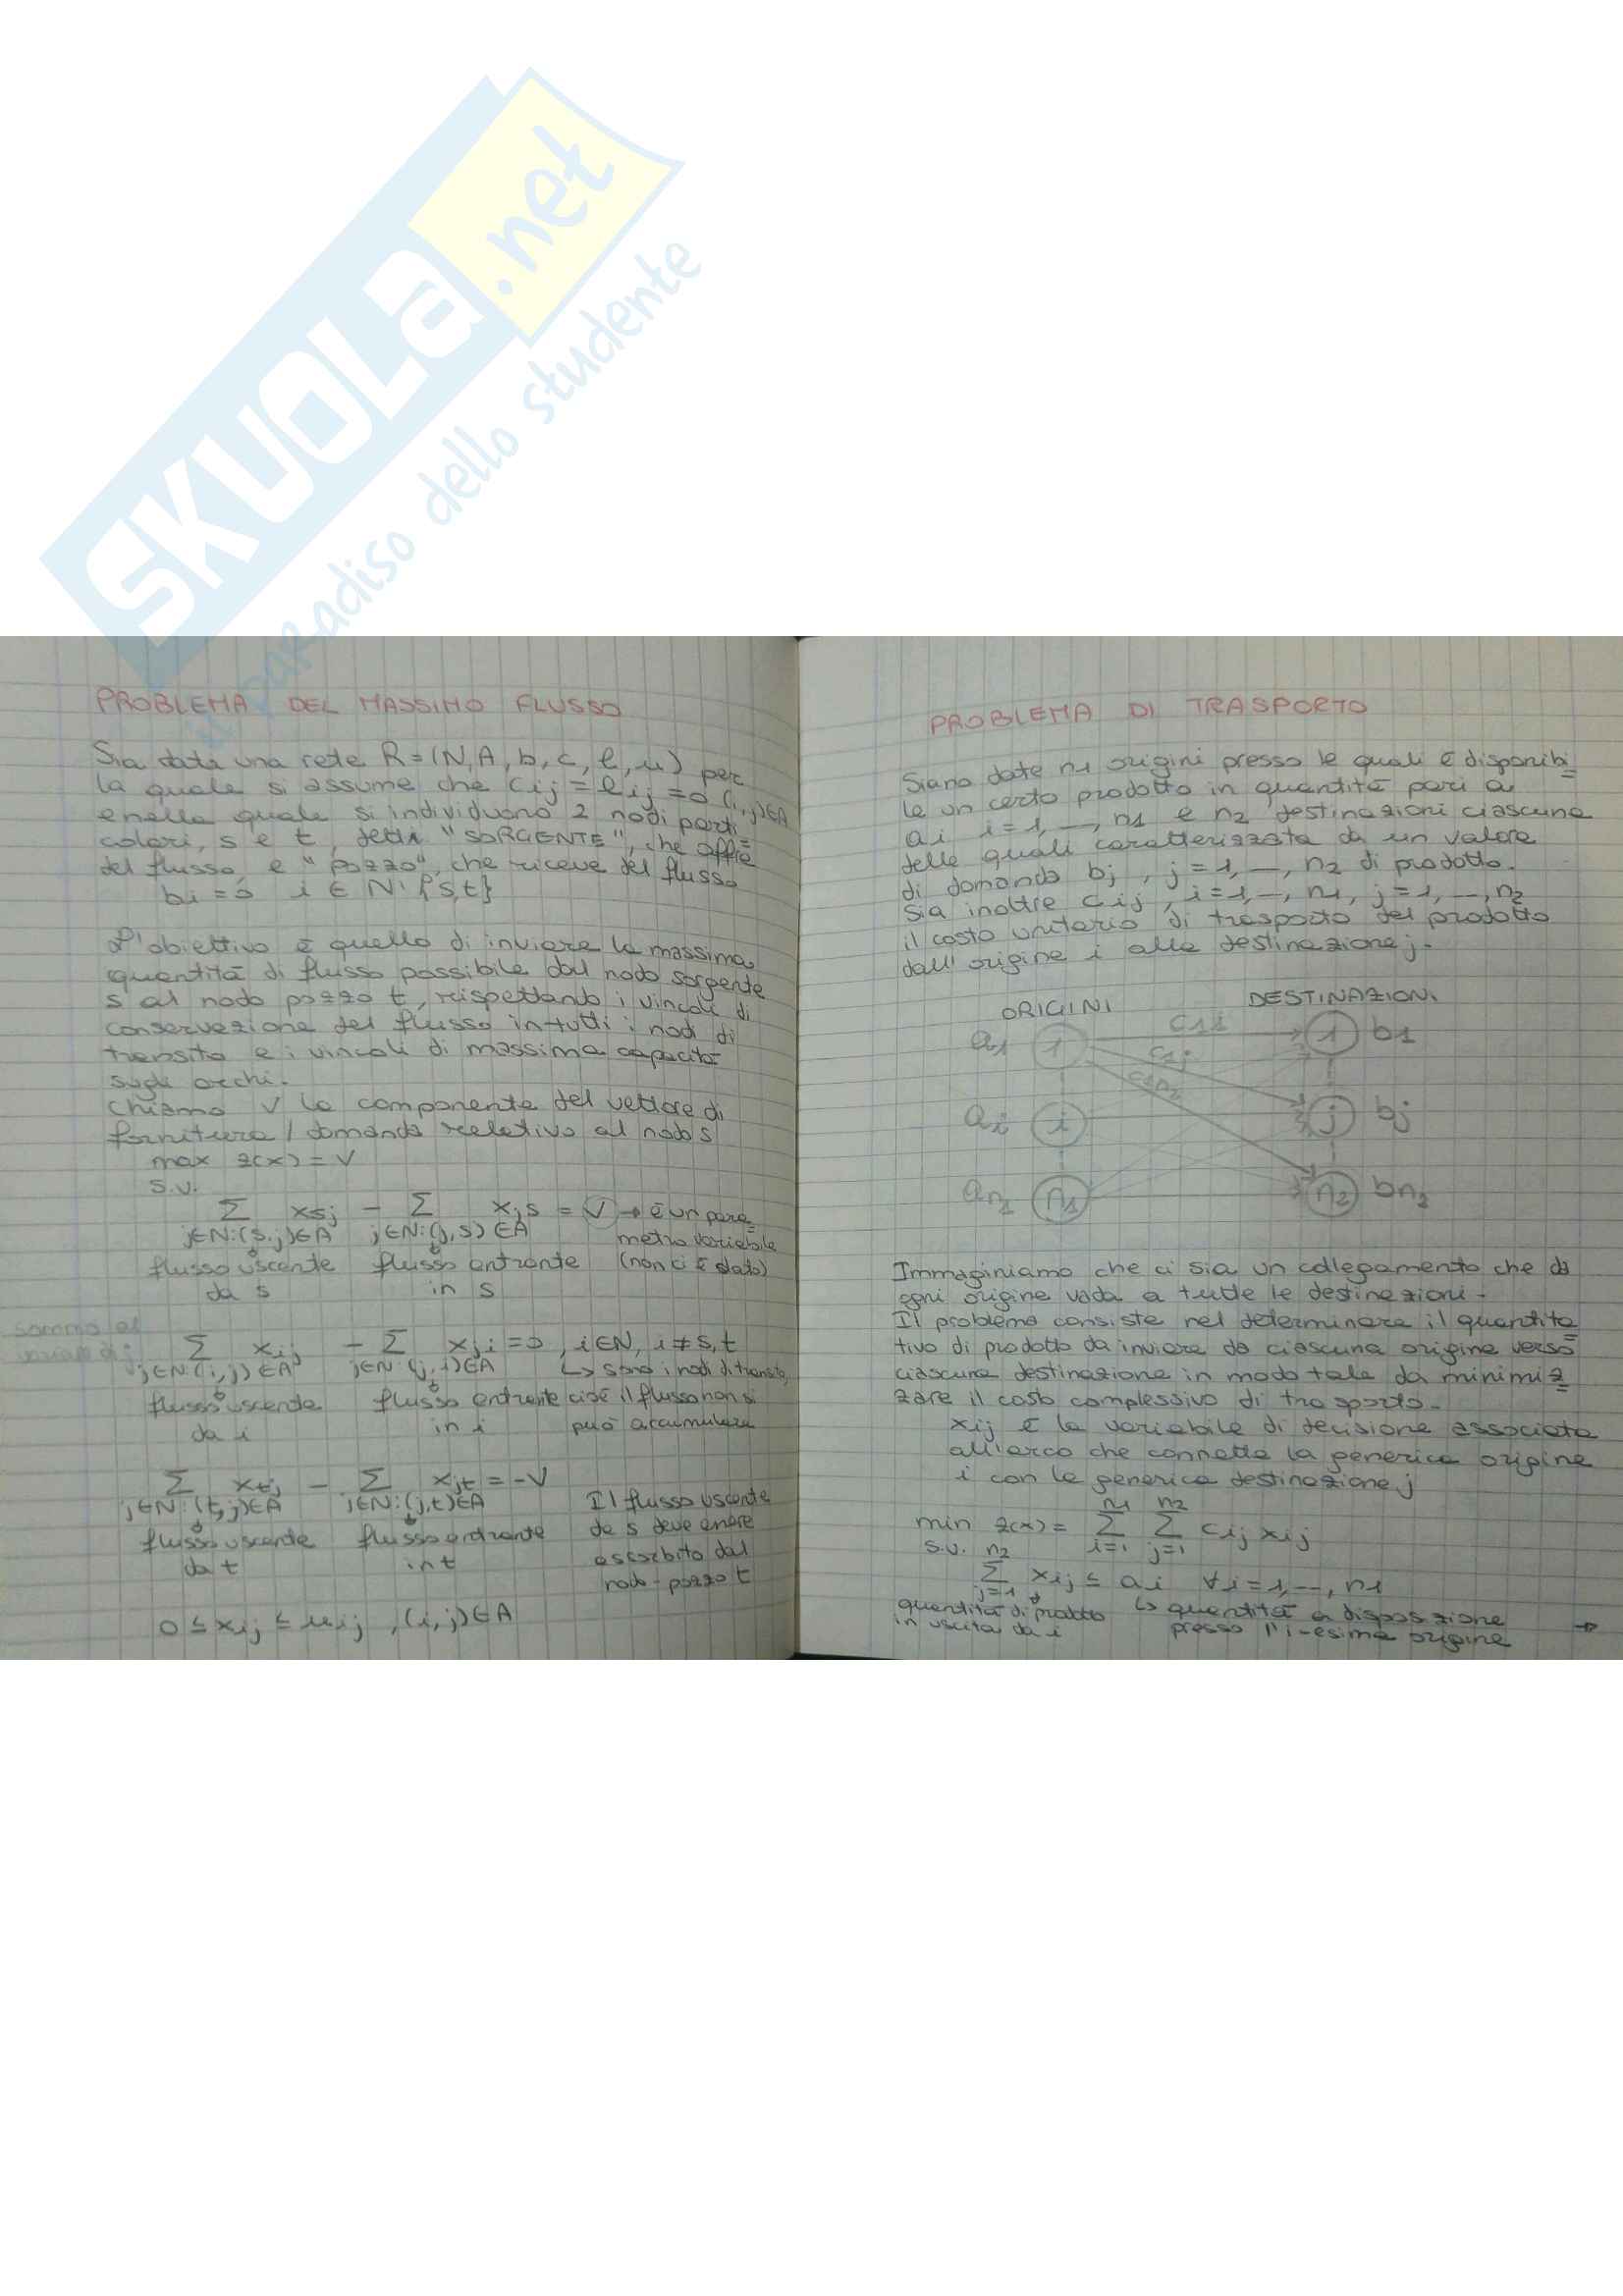 SKUOLA.net
il paradiso dello studente
PROBLEMA DEL MASSIMO FLUSSO
Sia data una rete R=(N,A,b,c,l,u) per
la quale si assume che cij = lij =0 (i,j)∈A
e nella quale si individuano 2 nodi parti=
colari, s e t, detti "SORGENTE", che offre
del flusso, e "pozzo", che riceve del flusso
bi = 0 i ∈ N\{s,t}
L'obiettivo è quello di inviare la massima
quantità di flusso possibile dal nodo sorgente
s al nodo pozzo t, rispettando i vincoli di
conservazione del flusso in tutti i nodi di
transito e i vincoli di massima capacità
sugli archi.
Chiamo V la componente del vettore di
fornitura/domanda relativo al nodo s
max z(x) = V
s.v.
Σ xsj - Σ xjs = V → è un para=
j∈N:(s,j)∈A j∈N:(j,s)∈A metro variabile
flusso uscente flusso entrante (non ci è dato)
da s in s
somma al
variare di j
Σ xij - Σ xji =0, i∈N, i≠s,t
j∈N:(i,j)∈A j∈N:(j,i)∈A ↳ sono i nodi di transito,
flusso uscente flusso entrante cioè il flusso non si
da i in i può accumulare
Σ xtj - Σ xjt = -V
j∈N:(t,j)∈A j∈N:(j,t)∈A Il flusso uscente
flusso uscente flusso entrante da s deve essere
da t in t assorbito dal
nodo-pozzo t
0 ≤ xij ≤ uij , (i,j)∈A
PROBLEMA DI TRASPORTO
Siano date n1 origini presso le quali è disponibi=
le un certo prodotto in quantità pari a
ai i=1,—,n1 e n2 destinazioni ciascuna
delle quali caratterizzata da un valore
di domanda bj, j=1,—,n2 di prodotto.
Sia inoltre cij, i=1,—,n1, j=1,—,n2
il costo unitario di trasporto del prodotto
dall'origine i alla destinazione j.
ORIGINI DESTINAZIONI
a1 1 c11 1 b1
c1j
c1n2
ai i j bj
an1 n1 n2 bn2
Immaginiamo che ci sia un collegamento che da
ogni origine vada a tutte le destinazioni.
Il problema consiste nel determinare il quantita=
tivo di prodotto da inviare da ciascuna origine verso
ciascuna destinazione in modo tale da minimiz=
zare il costo complessivo di trasporto.
xij è la variabile di decisione associata
all'arco che connette la generica origine
i con la generica destinazione j
n1 n2
min z(x) = Σ Σ cij xij
s.v. i=1 j=1
n2
Σ xij ≤ ai ∀i=1,—,n1
j=1
quantità di prodotto ↳ quantità a disposizione
in uscita da i presso l'i-esima origine →